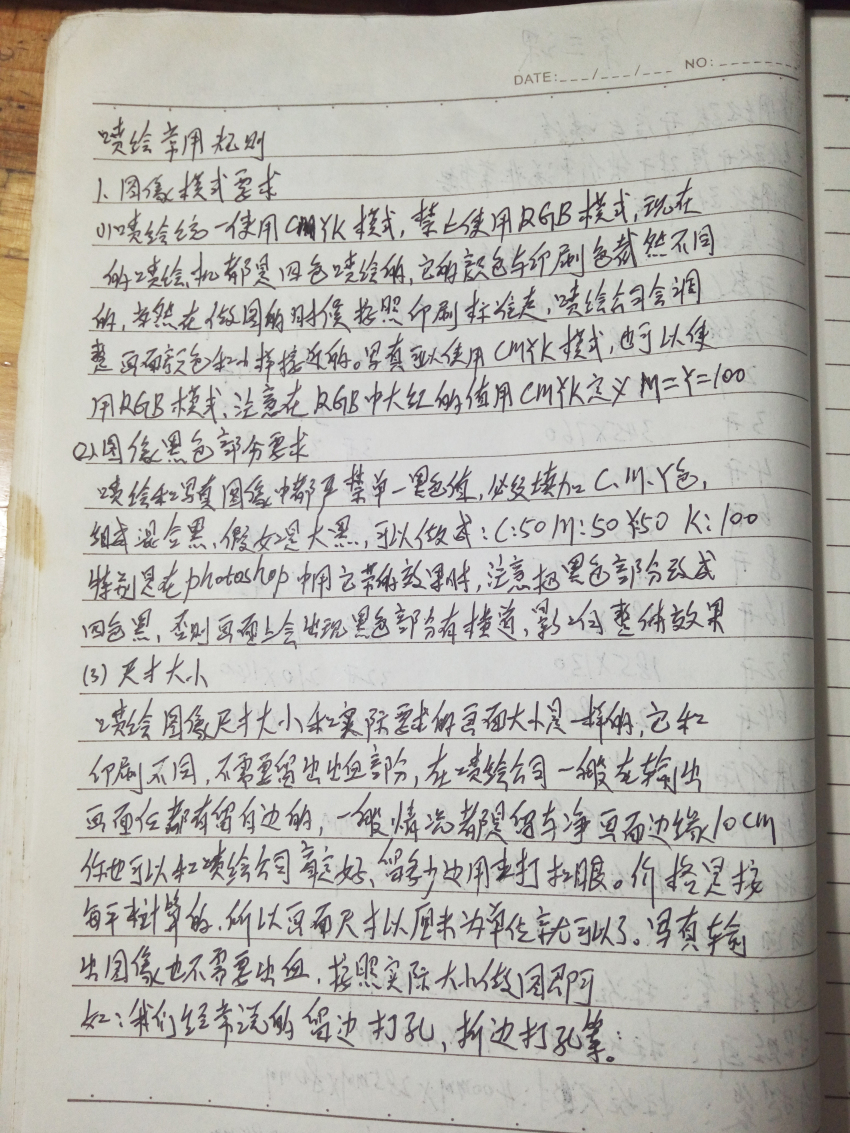 DATE:___/___/___ NO:
喷绘常用规则
1、图像模式要求
(1)喷绘统一使用CMYK模式,禁止使用RGB模式,现在
的喷绘机都是四色喷绘的,它的颜色与印刷色截然不同
的,当然在做图的时候按照印刷标准走,喷绘公司会调
整画面颜色和小样接近的。写真可以使用CMYK模式,也可以使
用RGB模式,注意在RGB中大红的值用CMYK定义 M=Y=100
(2)图像黑色部分要求
喷绘和写真图像中都严禁单一黑色值,必须填加C、M、Y色,
组成混合黑,假如是大黑,可以做成:C:50 M:50 Y:50 K:100
特别是在photoshop中用它带的效果时,注意把黑色部分改成
四色黑,否则画面上会出现黑色部分有横道,影响整体效果
(3)尺寸大小
喷绘图像尺寸大小和实际要求的画面大小是一样的,它和
印刷不同,不需要留出出血部分,在喷绘公司一般在输出
画面任都有留白边的,一般情况都是留车净画面边缘10CM
你也可以和喷绘公司商定好,留多少边用来打扣眼。价格是按
每平米计算的,所以画面尺寸以厘米为单位就可以了。写真输
出图像也不需要出血,按照实际大小做图即可
如:我们经常说的留边打孔,折边打孔等。